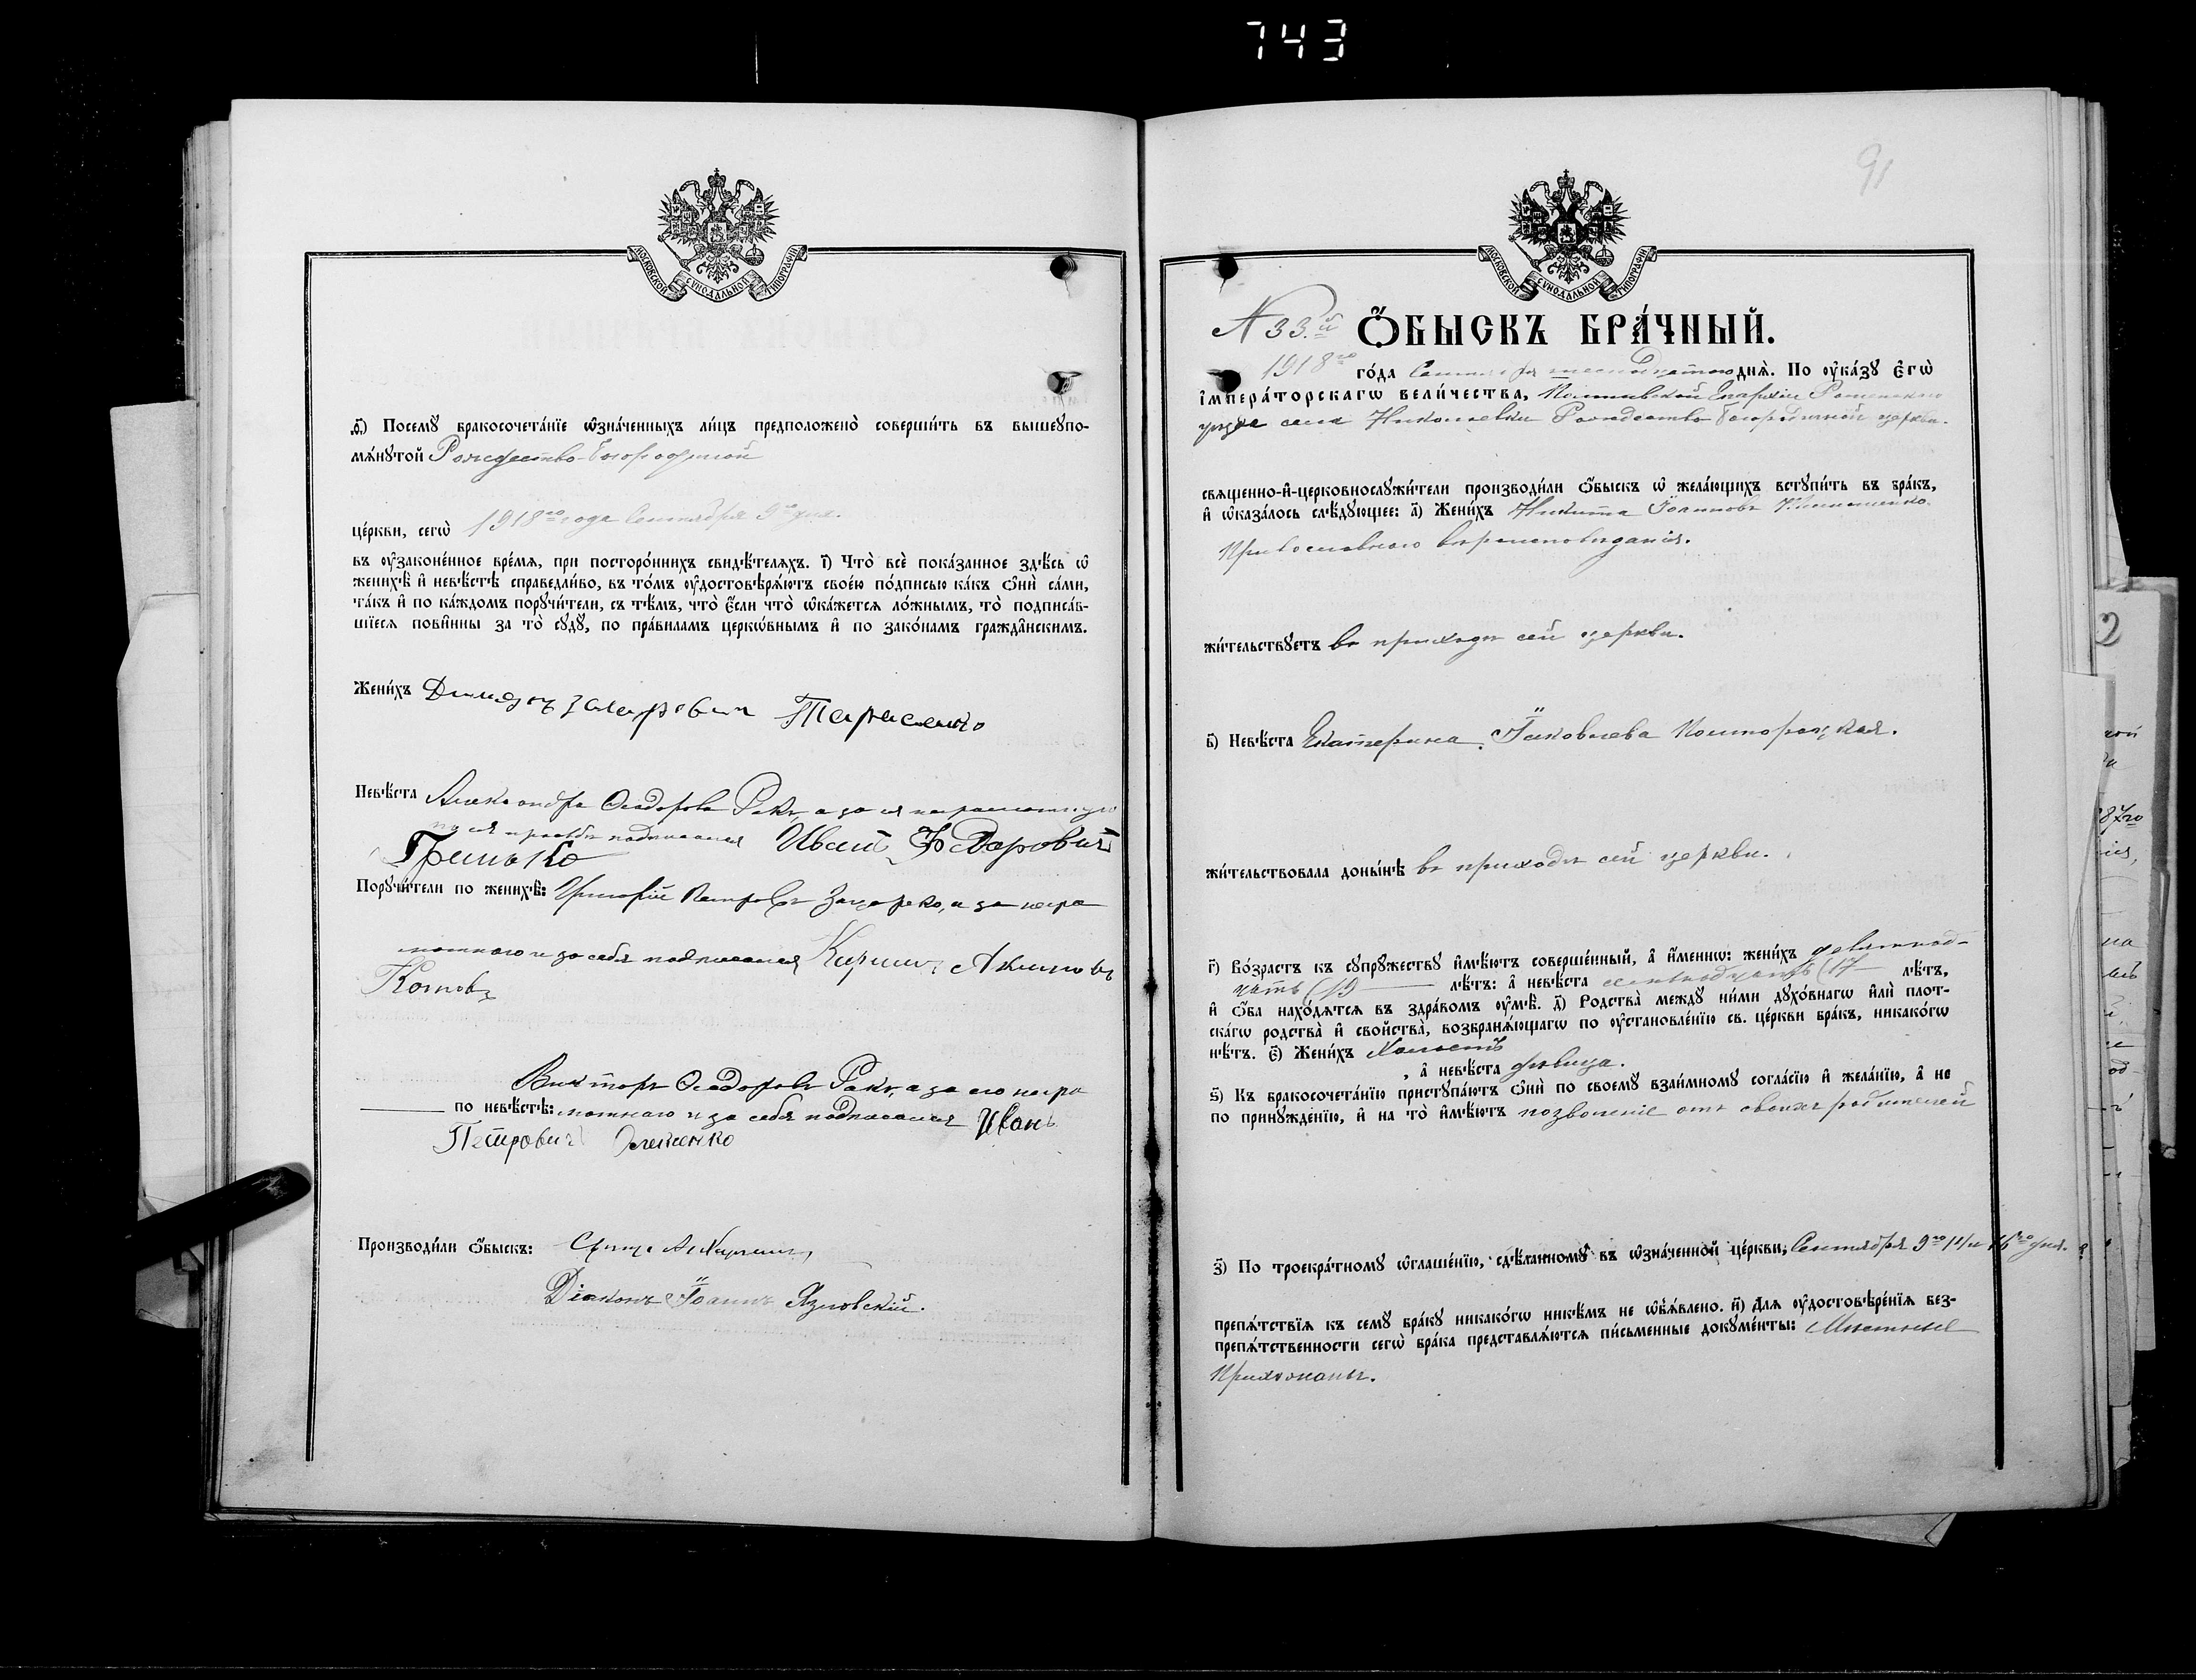 743
МОСКОВСКОЙ СѴНОДАЛЬНОЙ ТИПОГРАФІИ
ѳ҃) Посемꙋ̀ бракосочета́нїе ѡ҆зна́ченныхъ ли́цъ предположено̀ соверши́ть въ вышеꙋпо-
мѧ́нꙋтой Рождество-Богородичной
це́ркви, сегѡ̀ 1918го года Сентября 9го дня.
въ ᲂу҆зако́ненное вре́мѧ, при посторо́ннихъ свидѣ́телѧхъ. і҃) Что̀ всѐ пока́занное здѣ́сь ѡ҆
женихѣ̀ и҆ невѣ́стѣ справедли́во, въ то́мъ ᲂу҆достовѣрѧ́ютъ свое́ю по́дписью ка́къ ѻ҆нѝ са́ми,
та́къ и҆ по ка́ждомъ порꙋчи́тели, съ тѣ́мъ, что̀ є҆́сли что̀ ѡ҆ка́жетсѧ ло́жнымъ, то̀ подписа́в-
шїесѧ пови́нны за то̀ сꙋдꙋ̀, по пра́виламъ церкѡ́внымъ и҆ по зако́намъ гражда̂нскимъ.
Жени́хъ Тарасенко
Невѣ́ста Александра Ѳеодорова Ракъ, а за ея неграмотную
по ея просьбѣ подписался Иван Федарович
Гринько
Порꙋчи́тели по женихѣ̀: Григорій Петровъ а за негра
мотнаго и за себя подписался Акимовъ
Котовъ
Викторъ Ѳеодоровъ Ракъ, а за его негра
по невѣ́стѣ: мотнаго и за себя подписался Иванъ
Петрович
Производи́ли ѻ҆́быскъ: Свящ.
Діаконъ Іоаннъ
91
МОСКОВСКОЙ СѴНОДАЛЬНОЙ ТИПОГРАФІИ
№ 33.й Ѻ҆́БЫСКЪ БРА́ЧНЫЙ.
1918го го́да Сентября шестнадцатого днѧ̀. По ᲂу҆ка́зꙋ є҆гѡ̀
і҆мпера́торскагѡ вели́чества, Полтавской Епархіи Роменскаго
уѣзда села Николаевки Рождество-Богородичной церкви.
свѧще́нно-и҆-церковнослꙋжи́тели производи́ли ѻ҆́быскъ ѡ҆ жела́ющихъ встꙋпи́ть въ бра́къ,
и҆ ѡ҆каза́лось слѣ́дꙋющее: а҃) Жени́хъ Никита Іоанновъ
Православнаго вѣроисповѣданія.
жи́тельствꙋетъ въ приходѣ сей церкви.
в҃) Невѣ́ста Екатерина Іаковлева Полторацкая.
жи́тельствовала доны́нѣ въ приходѣ сей церкви.
г҃) Во́зрастъ къ сꙋпрꙋ́жествꙋ и҆мѣ́ютъ соверше́нный, а҆ и҆́менно: жени́хъ девятнад-
цать (19 лѣ́тъ: а҆ невѣ́ста семнадцать (17 лѣ́тъ,
и҆ ѻ҆́ба нахо́дѧтсѧ въ здра́вомъ ᲂу҆мѣ̀. д҃) Родства̀ междꙋ̀ ни́ми дꙋхо́внагѡ и҆лѝ плот-
ска́гѡ родства̀ и҆ сво́йства, возбранѧ́ющагѡ по ᲂу҆становле́нїю св. це́ркви бра́къ, никако́гѡ
нѣ́тъ. є҃) Жени́хъ Холостъ
, а҆ невѣ́ста дѣвица.
ѕ҃) Къ бракосочета́нїю пристꙋпа́ютъ ѻ҆нѝ по своемꙋ̀ взаи́мномꙋ согла́сїю и҆ жела́нїю, а҆ не
по принꙋжде́нїю, и҆ на то̀ и҆мѣ́ютъ позволеніе отъ своихъ родителей
з҃) По троекра́тномꙋ ѡ҆глаше́нїю, сдѣ́ланномꙋ въ ѡ҆зна́ченной це́ркви, Сентября 9го 14 и 16го дня.
препѧ́тствїѧ къ семꙋ̀ бра́кꙋ никако́гѡ никѣ́мъ не ѡ҆б̾ѧ́влено. и҃) Длѧ ᲂу҆достовѣре́нїѧ без-
препѧ́тственности сегѡ̀ бра́ка представлѧ́ютсѧ пи́сьменные докꙋме́нты: Мѣстные
Прихожане.